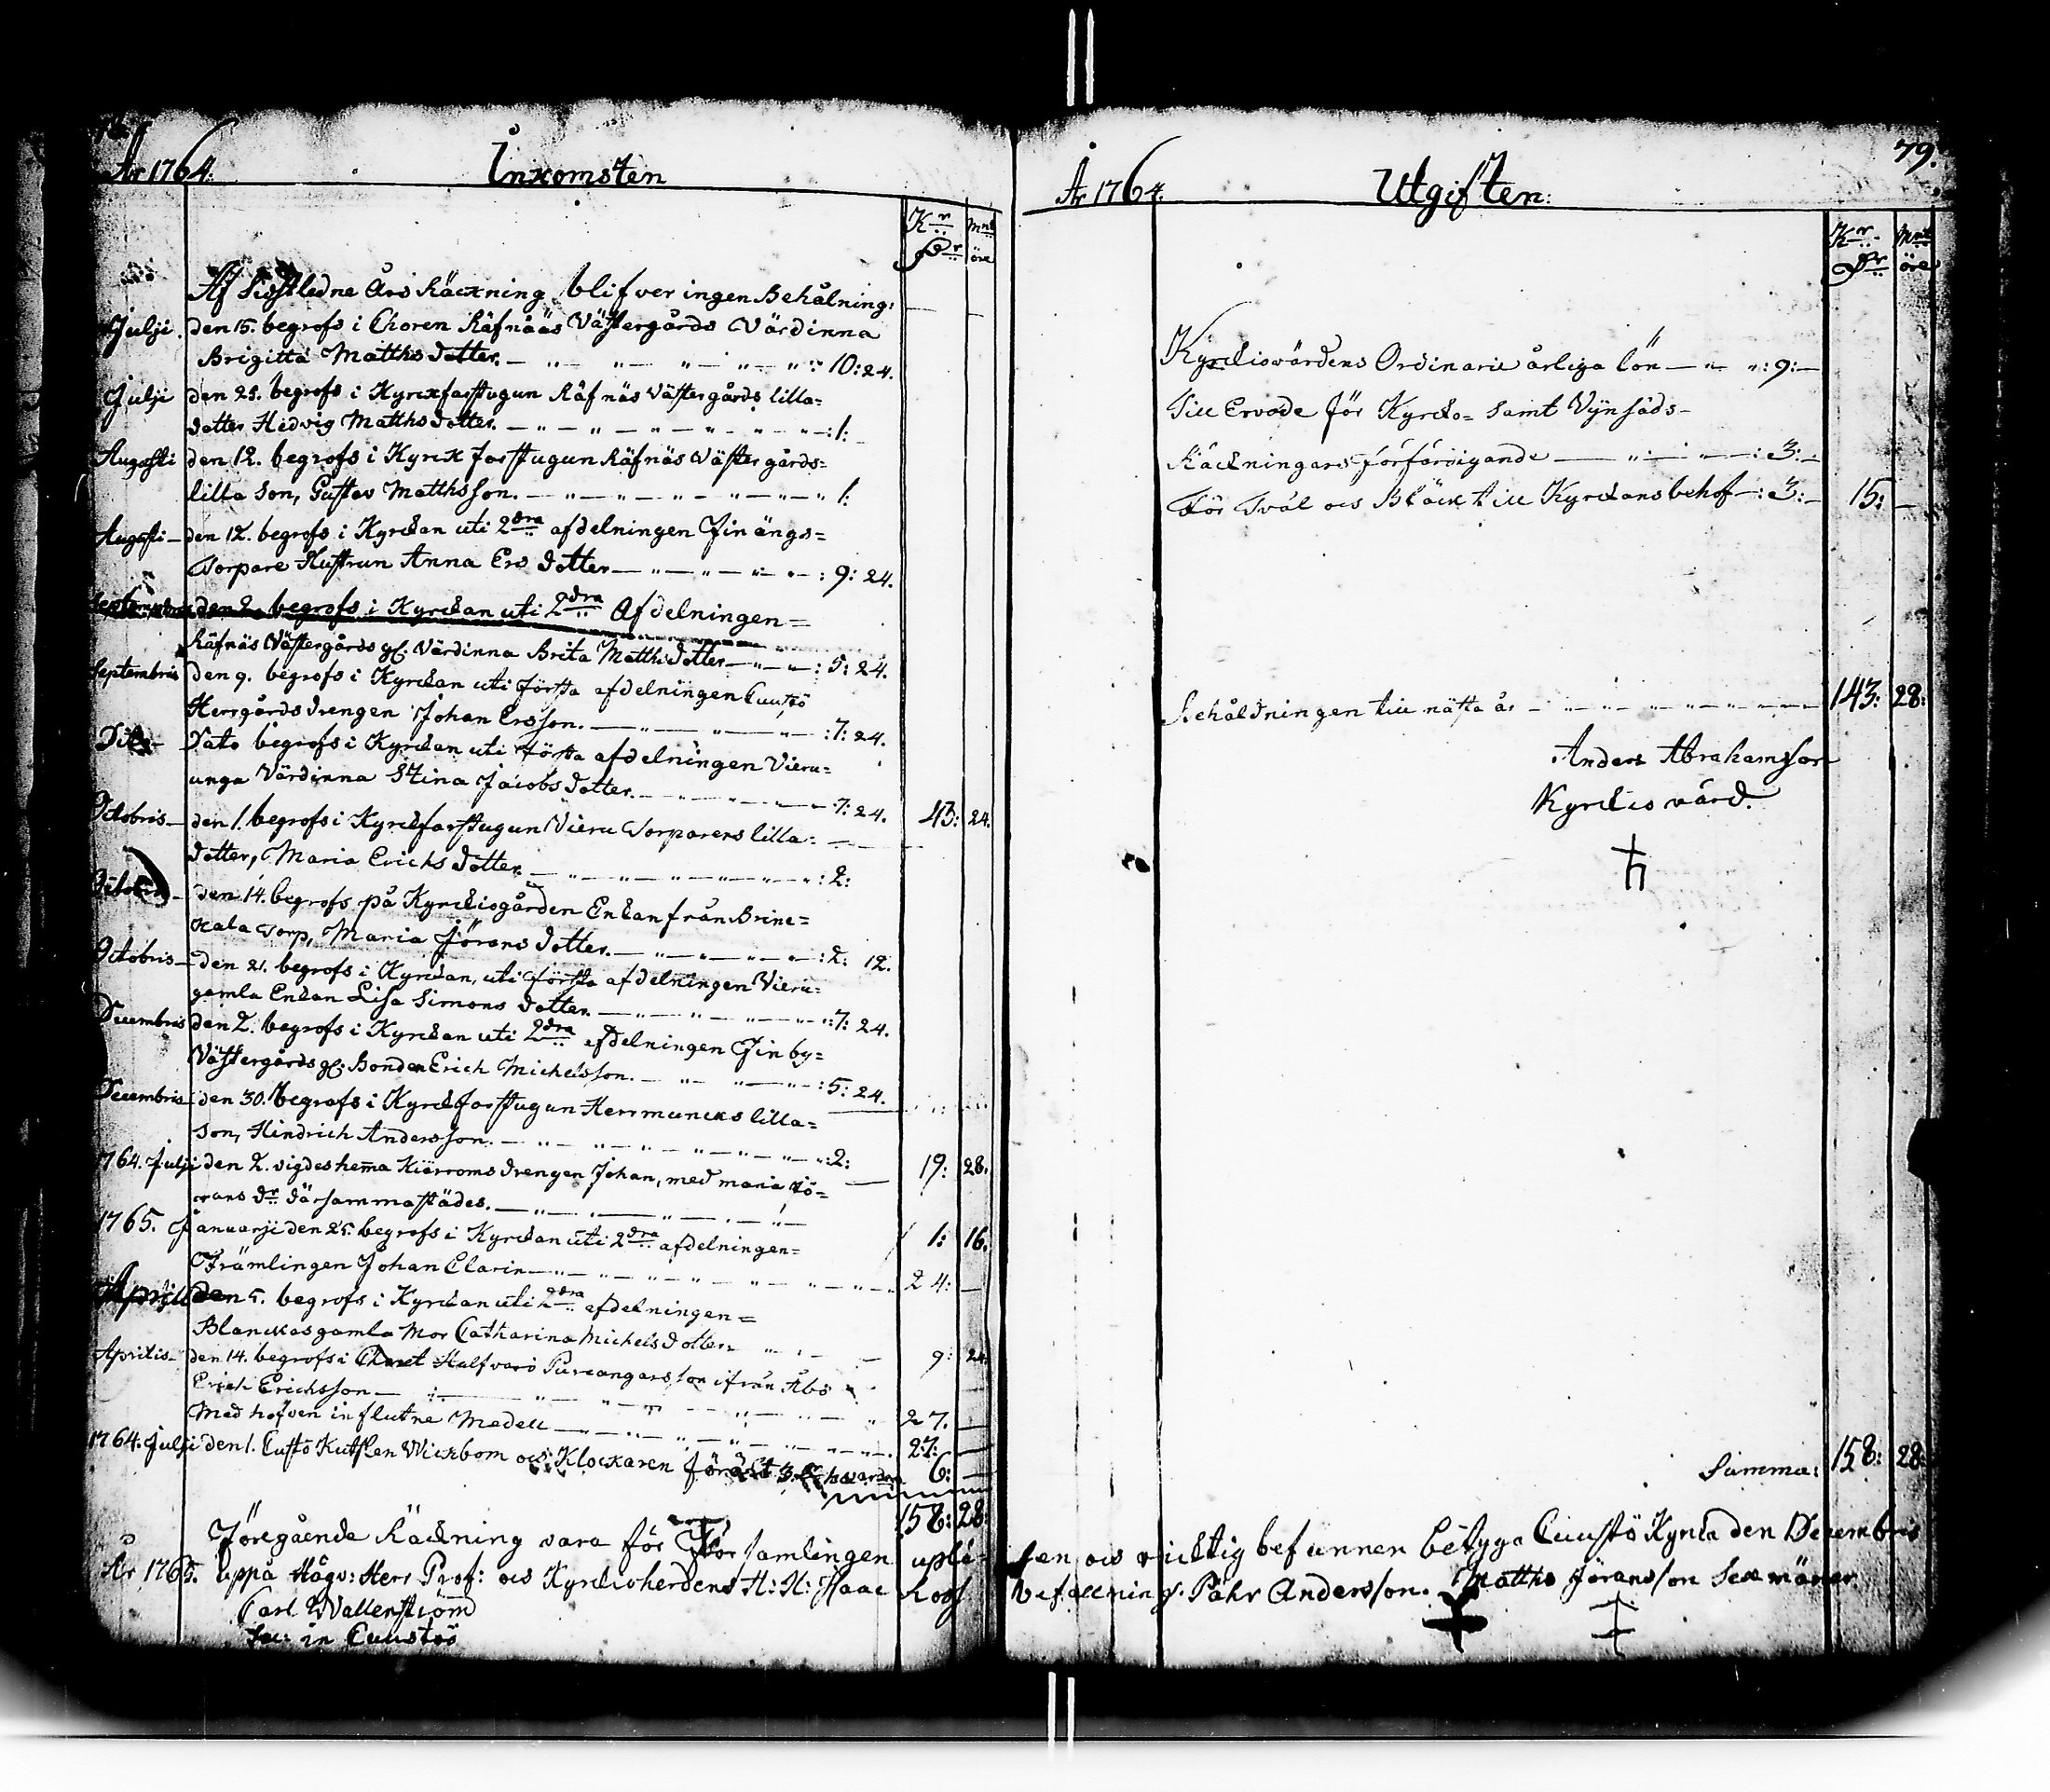 År 1764. Inkomsten
Kr Mnt
Dr öre
Af Sidstledne Års Räckning blifver ingen Behålning:
Julji. den 15. begrofs i Choren Räfnääs Västergårds Värdinna
Brigitta Matths dotter. 10: 24.
Julji den 25. begrofs i Kyrckfarstugun Räfnäs Västergårds lilla=
dotter Hedvig Matths dotter. 1:
Augusti den 12. begrofs i Kyrckfarstugun Räfnäs Västergårds=
lilla Son, Gustav Matthsson. 1:
Augusti den 12. begrofs i Kyrckan uti 2dra afdelningen Finängs=
Torpare Hustrun Anna Ers dotter 9: 24.
Septembris den 2. begrofs i Kyrckan uti 2dra Afdelningen=
Räfnäs Västergårds gl. Värdinna Brita Matths dotter 5: 24.
Septembris den 9. begrofs i Kyrckan uti första afdelningen Cuustö
Herrgårds drengen Johan Ersson. 7: 24.
Dito Dato begrofs i Kyrckan uti första afdelningen Vieru=
unga Värdinna Stina Jacobs dotter. 7: 24. 43: 24.
Octobris den 1. begrofs i Kyrckfarstugun Vieru Torparens lilla=
dotter, Maria Erichs dotter. 2:
Octobris den 14. begrofs på Kyrckiogården Enkan från Brine=
kala Torp, Maria Jörans dotter. 2: 12.
Octobris den 21. begrofs i Kyrckan, uti första afdelningen Vieru=
gamla Enkan Lisa Simons dotter. 7: 24.
Decembris den 2. begrofs i Kyrckan uti 2dra afdelningen Finby=
Västergårds gl. Bonden Erich Michelsson. 5: 24.
Decembris den 30. begrofs i Kyrckfarstugun Herrmuncks lilla=
Son, Hindrich Andersson. 2: 19: 28.
1764. Julji den 2. vigdes hemma Kiärroms drengen Johan, med Maria Jö=
rans dr därsammastädes. 1: 16.
1765. Januarji den 25. begrofs i Kyrckan uti 2dra afdelningen=
Främlingen Johan Clarin 24:
Aprilis den 5. begrofs i Kyrckan uti 2dra afdelningen=
Blanckas gamla Mor Catharina Michels dotter 9: 24.
Aprilis den 14. begrofs i Choret Halfvarö son ifrån Åbo
Erich Erichsson 27.
Med håfven influtne Medell 27:
1764. Julji den 1. Custö Kutsken Wickbom och Klockaren 3. hvardera 6:
158: 28.
Föregående Räckning vara för Församlingen uplä=
År 1765. Uppå Högv: Herr Prof: och Kyrckioherdens H: H: Isaac Ross
Carl Wallenström
in Cuustöö
79.
År 1764. Utgiften:
Kr Mnt
Dr öre
Kyrckiovärdens Ordinarie årliga lön 9:
Till Ervode för Kyrcko= samt Vijnsäds-
Räckningars förfärdigande 3:
För Tvål och Bläck till Kyrckans behof 3: 15:
Behåldningen till nästa år 143: 28:
Anders Abrahamsson
Kyrckiovärd.
Summa: 158: 28:
sen och richtig befunnen betyga Cuustö Kyrcka den Decembris
befallning. Påhr Andersson. Matths Jöransson Sexmäner.